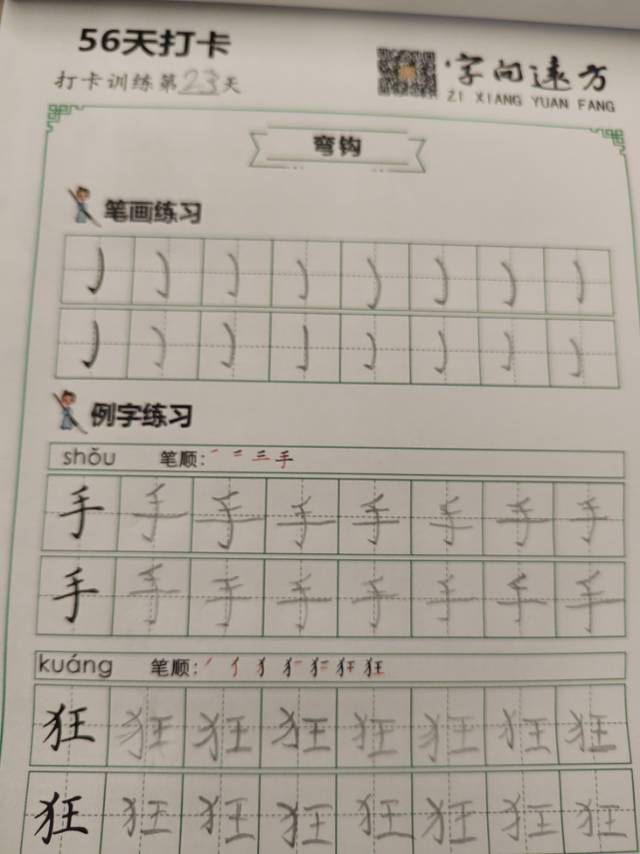 56天打卡
打卡训练第23天
字向远方
ZI XIANG YUAN FANG
弯钩
笔画练习
㇁ ㇁ ㇁ ㇁ ㇁ ㇁ ㇁ ㇁
㇁ ㇁ ㇁ ㇁ ㇁ ㇁ ㇁ ㇁
例字练习
shǒu 笔顺: ㇒ 二 三 手
手 手 手 手 手 手 手 手
手 手 手 手 手 手 手 手
kuáng 笔顺: 狂
狂 狂 狂 狂 狂 狂 狂 狂
狂 狂 狂 狂 狂 狂 狂 狂